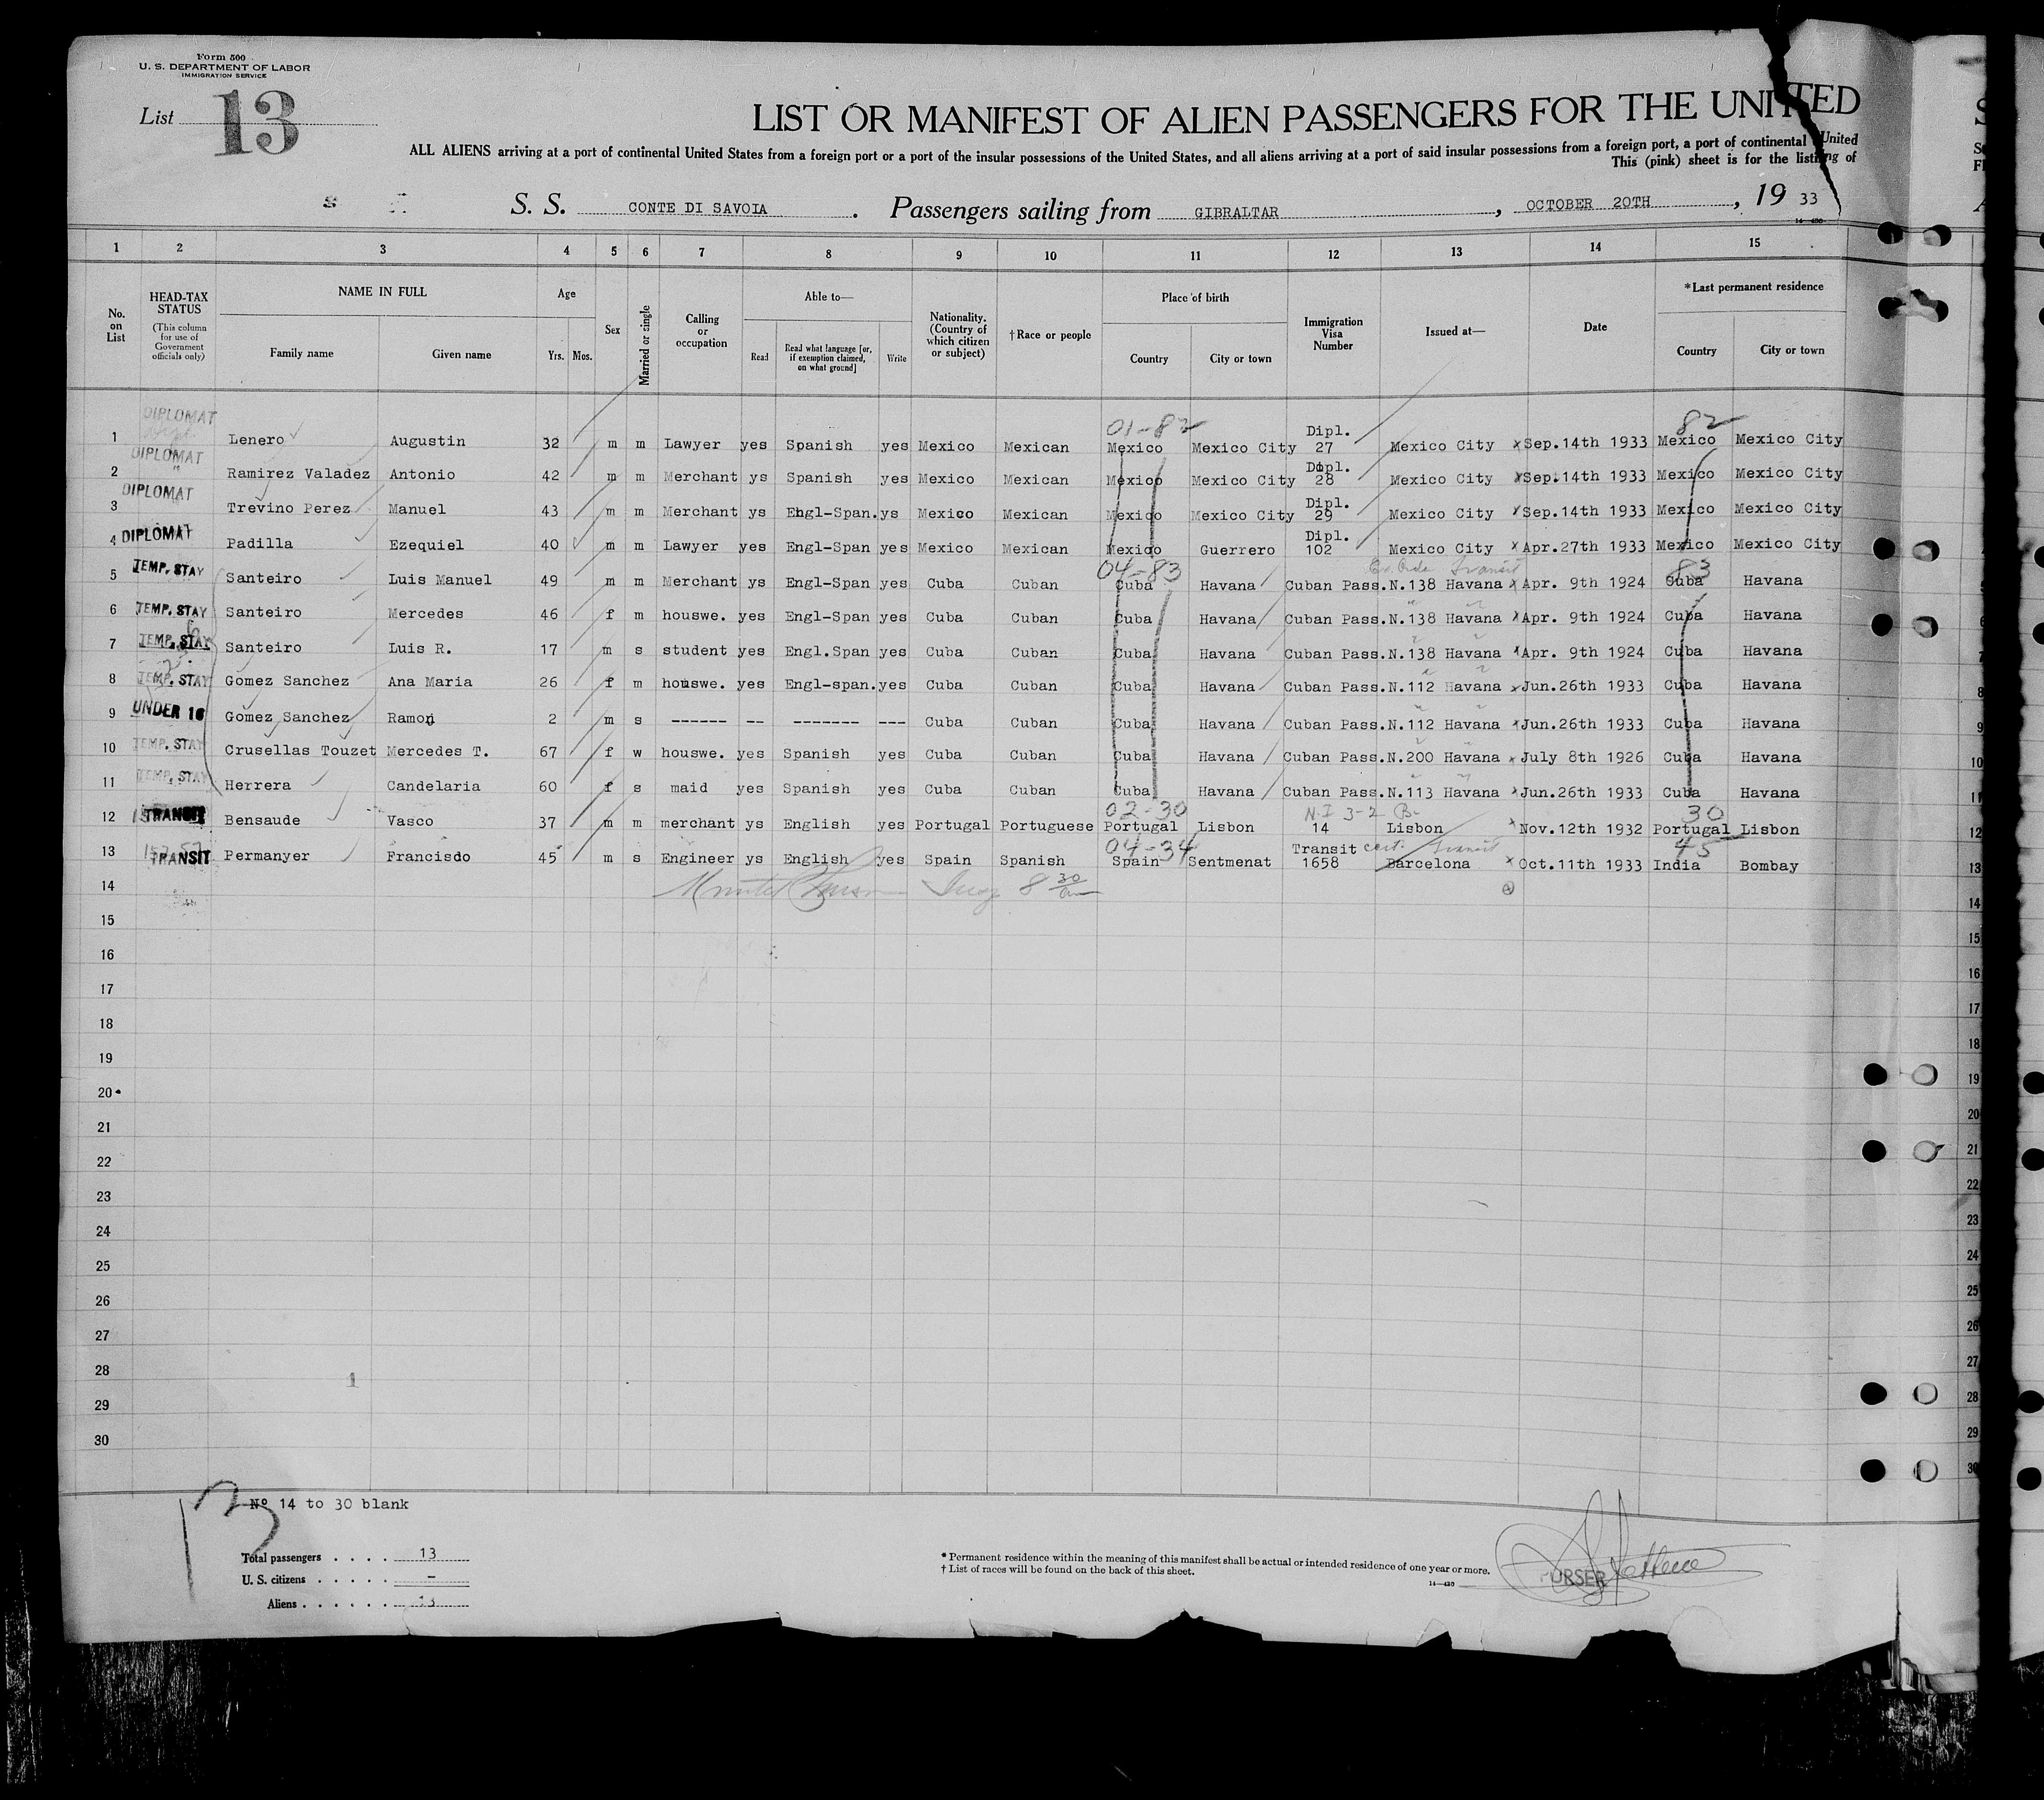 Form 500
U. S. DEPARTMENT OF LABOR
IMMIGRATION SERVICE
List 13
LIST OR MANIFEST OF ALIEN PASSENGERS FOR THE UNITED
ALL ALIENS arriving at a port of continental United States from a foreign port or a port of the insular possessions of the United States, and all aliens arriving at a port of said insular possessions from a foreign port, a port of continental United
This (pink) sheet is for the listing of
S. S. CONTE DI SAVOIA. Passengers sailing from GIBRALTAR, OCTOBER 20TH, 19 33
1 2 3 4 5 6 7 8 9 10 11 12 13 14 15
No. on List
HEAD-TAX STATUS (This column for use of Government officials only)
NAME IN FULL
Family name Given name
Age Yrs. Mos.
Sex
Married or single
Calling or occupation
Able to—
Read
Read what language [or, if exemption claimed, on what ground]
Write
Nationality. (Country of which citizen or subject)
† Race or people
Place of birth
Country City or town
Immigration Visa Number
Issued at—
Date
*Last permanent residence
Country City or town
01-82 82
1 DIPLOMAT Lenero Augustin 32 m m Lawyer yes Spanish yes Mexico Mexican Mexico Mexico City Dipl. 27 Mexico City Sep.14th 1933 Mexico Mexico City
2 DIPLOMAT Ramirez Valadez Antonio 42 m m Merchant ys Spanish yes Mexico Mexican Mexico Mexico City Dipl. 28 Mexico City Sep.14th 1933 Mexico Mexico City
3 DIPLOMAT Trevino Perez Manuel 43 m m Merchant ys Engl-Span. ys Mexico Mexican Mexico Mexico City Dipl. 29 Mexico City Sep.14th 1933 Mexico Mexico City
4 DIPLOMAT Padilla Ezequiel 40 m m Lawyer yes Engl-Span yes Mexico Mexican Mexico Guerrero Dipl. 102 Mexico City Apr.27th 1933 Mexico Mexico City
04-83 Transit 83
5 TEMP. STAY Santeiro Luis Manuel 49 m m Merchant ys Engl-Span yes Cuba Cuban Cuba Havana Cuban Pass.N.138 Havana Apr. 9th 1924 Cuba Havana
6 TEMP. STAY Santeiro Mercedes 46 f m houswe. yes Engl-Span yes Cuba Cuban Cuba Havana Cuban Pass.N.138 Havana Apr. 9th 1924 Cuba Havana
7 TEMP. STAY Santeiro Luis R. 17 m s student yes Engl.Span yes Cuba Cuban Cuba Havana Cuban Pass.N.138 Havana Apr. 9th 1924 Cuba Havana
8 TEMP. STAY Gomez Sanchez Ana Maria 26 f m houswe. yes Engl-span. yes Cuba Cuban Cuba Havana Cuban Pass.N.112 Havana Jun.26th 1933 Cuba Havana
9 UNDER 16 Gomez Sanchez Ramon 2 m s ------ -- ------- --- Cuba Cuban Cuba Havana Cuban Pass.N.112 Havana Jun.26th 1933 Cuba Havana
10 TEMP. STAY Crusellas Touzet Mercedes T. 67 f w houswe. yes Spanish yes Cuba Cuban Cuba Havana Cuban Pass.N.200 Havana July 8th 1926 Cuba Havana
11 TEMP. STAY Herrera Candelaria 60 f s maid yes Spanish yes Cuba Cuban Cuba Havana Cuban Pass.N.113 Havana Jun.26th 1933 Cuba Havana
02-30 N.I 3-2 30
12 TRANSIT Bensaude Vasco 37 m m merchant ys English yes Portugal Portuguese Portugal Lisbon 14 Lisbon Nov.12th 1932 Portugal Lisbon
04-34 cert. Transit 45
13 TRANSIT Permanyer Francisdo 45 m s Engineer ys English yes Spain Spanish Spain Sentmenat Transit 1658 Barcelona Oct.11th 1933 India Bombay
14 8 30
15
16
17
18
19
20
21
22
23
24
25
26
27
28
29
30
13
Nº 14 to 30 blank
Total passengers . . . . 13
U. S. citizens . . . . . -
Aliens . . . . . . 13
* Permanent residence within the meaning of this manifest shall be actual or intended residence of one year or more.
† List of races will be found on the back of this sheet.
PURSER